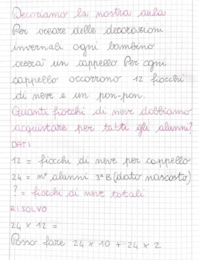 Decoriamo la nostra aula
Per creare delle decorazioni
invernali ogni bambino
creerà un cappello Per ogni
cappello occorrono 12 fiocchi
di neve e un pon-pon.
Quanti fiocchi di neve dobbiamo
acquistare per tutti gli alunni?
DATI
12 = fiocchi di neve per cappello
24 = n° alunni 3ªB (dato nascosto)
? = fiocchi di neve totali
RISOLVO
24 x 12 =
Posso fare 24 x 10 + 24 x 2